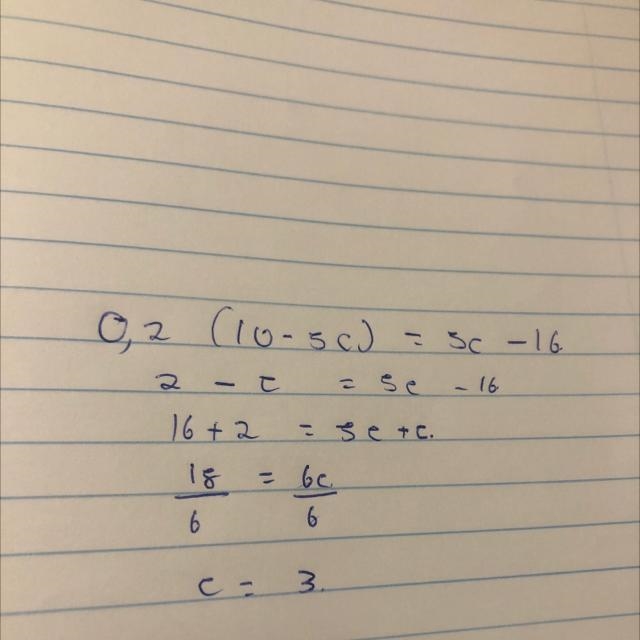 0,2 (10 - 5c) = 5c - 16
2 - c = 5c - 16
16 + 2 = 5c + c.
18 = 6c
6 6
c = 3.